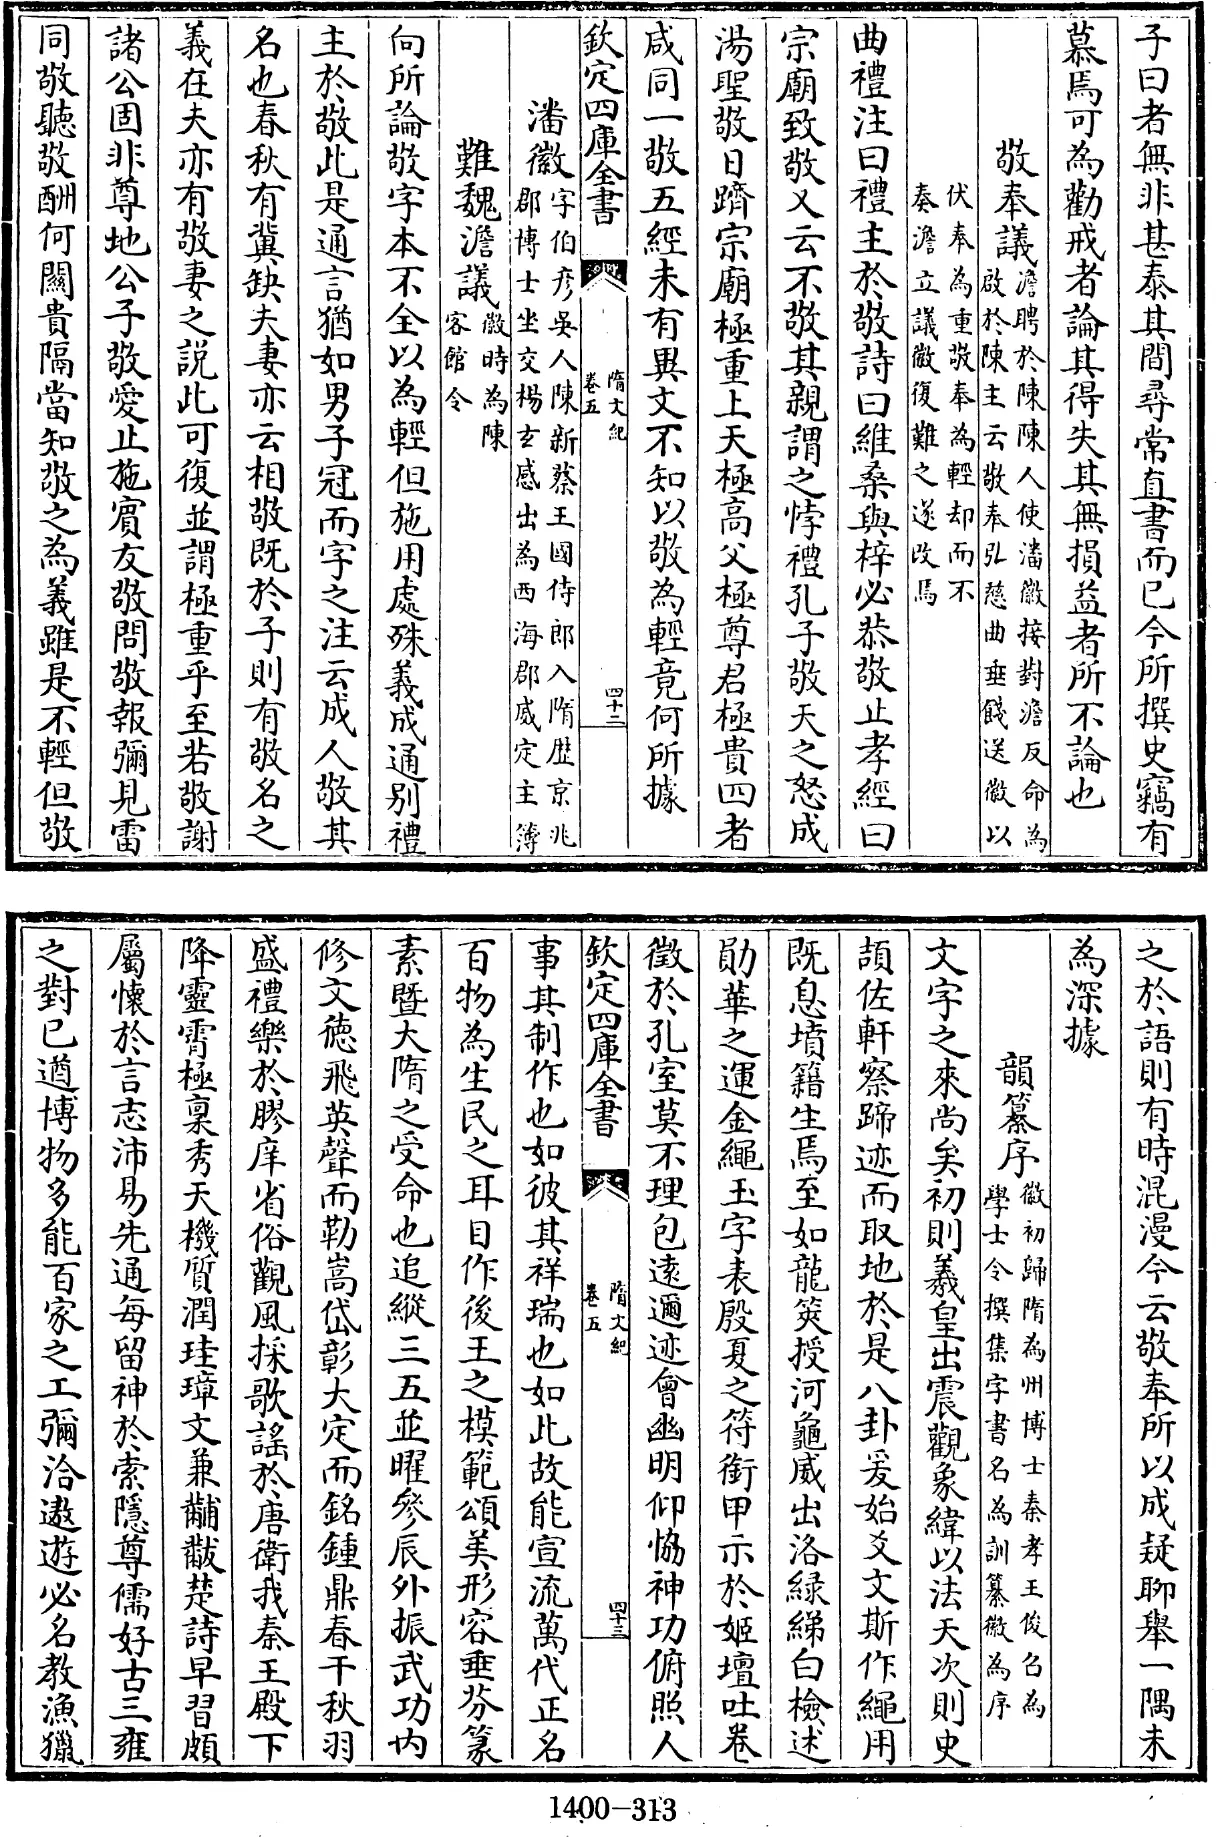 子曰者無非甚泰其間尋常直書而已今所撰史竊有
慕焉可為勸戒者論其得失其無損益者所不論也
敬奉議
澹聘於陳陳人使潘徽接對澹反命為
啟於陳主云敬奉弘慈曲垂餞送徽以
伏奉為重敬奉為輕却而不
奏澹立議徽復難之遂改焉
曲禮注曰禮主於敬詩曰維桑與梓必恭敬止孝經曰
宗廟致敬又云不敬其親謂之悖禮孔子敬天之怒成
湯聖敬日躋宗廟極重上天極高父極尊君極貴四者
咸同一敬五經未有異文不知以敬為輕竟何所據
欽定四庫全書
隋文紀
卷五
四十二
潘徽
字伯彥吳人陳新蔡王國侍郎入隋歴京兆
郡博士坐交楊玄感出為西海郡威定主簿
難魏澹議
徽時為陳
客館令
向所論敬字本不全以為輕但施用處殊義成通别禮
主於敬此是通言猶如男子冠而字之注云成人敬其
名也春秋有冀缺夫妻亦云相敬既於子則有敬名之
義在夫亦有敬妻之説此可復並謂極重乎至若敬謝
諸公固非尊地公子敬愛止施賓友敬問敬報彌見雷
同敬聽敬酬何關貴隔當知敬之為義雖是不輕但敬
之於語則有時混漫今云敬奉所以成疑聊舉一隅未
為深據
韻纂序
徽初歸隋為州博士秦孝王俊召為
學士令撰集字書名為訓纂徽為序
文字之來尚矣初則羲皇出震觀象緯以法天次則史
頡佐軒察蹄迹而取地於是八卦爰始爻文斯作繩用
既息墳籍生焉至如龍筴授河龜威出洛緑綈白檢述
勛華之運金繩玉字表殷夏之符銜甲示於姬壇吐卷
徵於孔室莫不理包遠邇迹會幽明仰恊神功俯照人
欽定四庫全書
隋文紀
卷五
四十三
事其制作也如彼其祥瑞也如此故能宣流萬代正名
百物為生民之耳目作後王之模範頌美形容垂芬篆
素暨大隋之受命也追縱三五並曜參辰外振武功内
修文德飛英聲而勒嵩岱彰大定而銘鍾鼎春干秋羽
盛禮樂於膠庠省俗觀風採歌謠於唐衛我秦王殿下
降靈霄極稟秀天機質潤珪璋文兼黼黻楚詩早習頗
屬懷於言志沛易先通每留神於索隱尊儒好古三雍
之對已遒博物多能百家之工彌洽遨遊必名教漁獵
1400-313